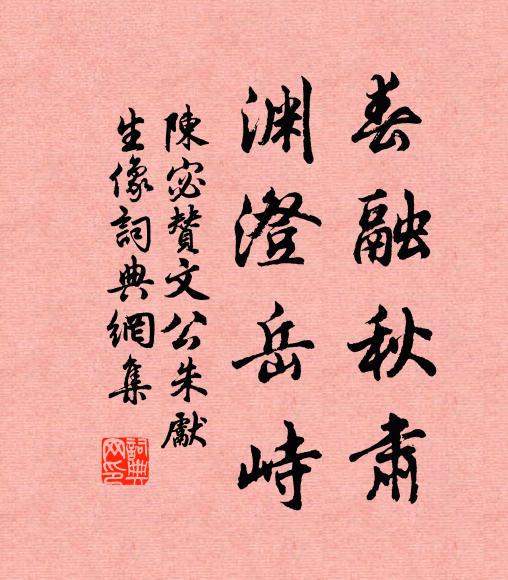 春融秋肅
淵澄岳峙
陳宓贊文公朱獻
生像詞典網集
詞典
网印